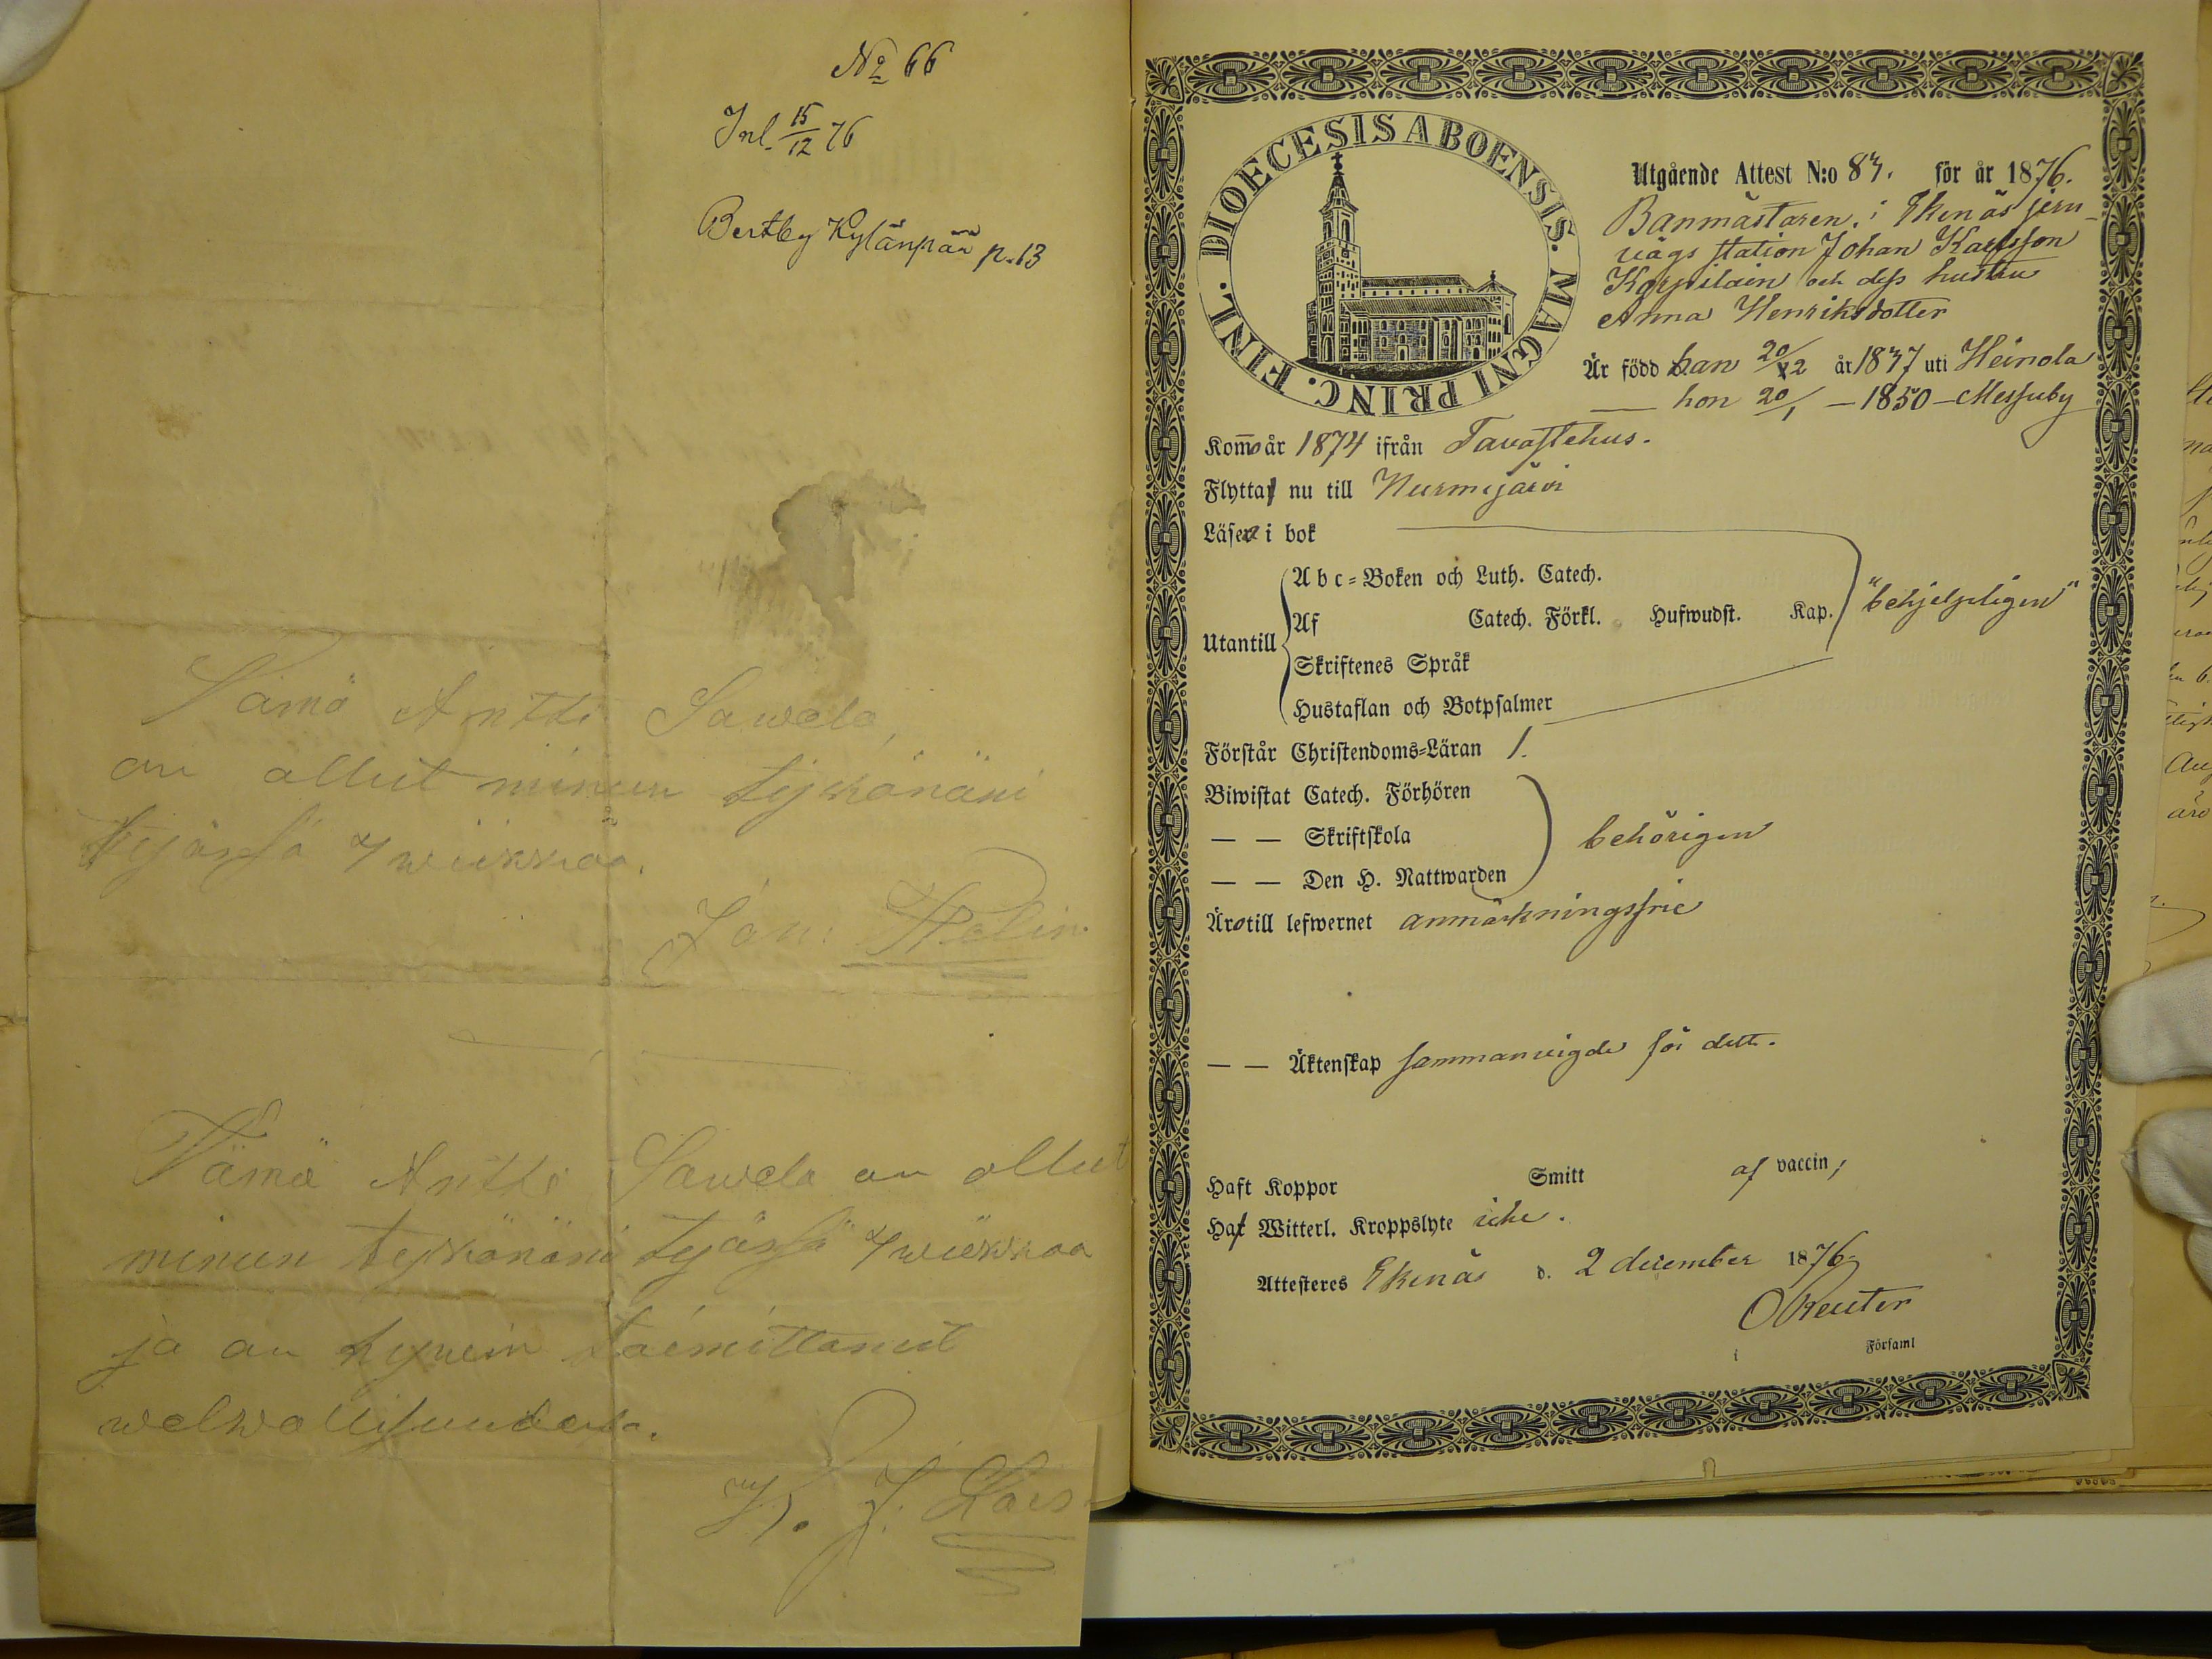 No 66
Inl. 15/12 76
Bertby Kylänpää p. 13
Tämä Antti Sawela
on ollut minun tykönäni
työssä 7 wiikkoa.
Joh. Helin.
Tämä Antti Sawela on ollut
minun tykönäni työssä 7 wiikkoa
ja on hywin toimittanut
welwollisuudensa.
K. J.
DIOECESIS ABOENSIS. MAGNI PRINC. FINL.
Utgående Attest N:o 83. för år 1876.
Banmästaren i Ekenäs jern-
vägs station Johan Karlsson
Karpilain och dess hustru
Anna Henriksdotter
Är född han 20/12 år 1837 uti Heinola
— hon 20/1 — 1850 — Messuby
Kommo år 1874 ifrån Tavastehus.
Flytta nu till Nurmijärvi
Läsa i bok
Utantill
Abc=Boken och Luth. Catech.
Af Catech. Förkl. Hufwudst. Kap. "behjelpligen"
Skriftenes Språk
Hustaflan och Botpsalmer
Förstår Christendoms=Läran 1.
Biwistat Catech. Förhören
— — Skriftskola behörigen
— — Den H. Nattwarden
Äro till lefwernet anmärkningsfrie
— — Äktenskap sammanvigde för dett.
Haft Koppor Smitt af vaccin;
Haf Witterl. Kroppslyte icke.
Attesteres Ekenäs d. 2 december 1876.
O Reuter
i Församl